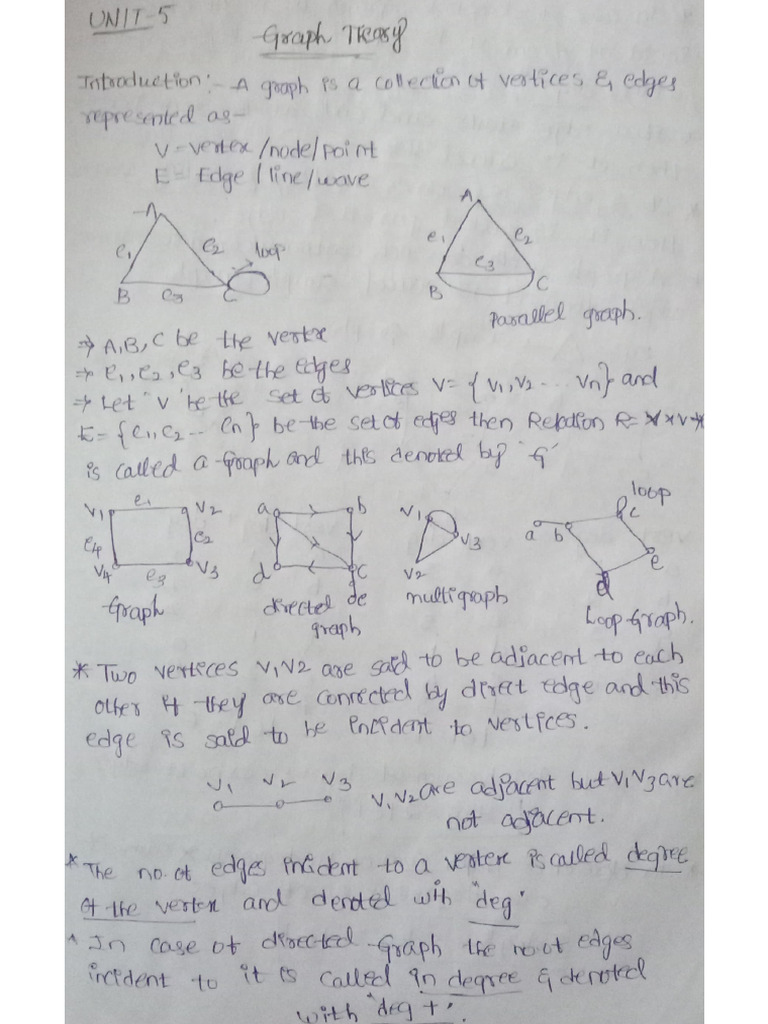 UNIT-5
Graph Theory
Introduction:- A graph is a collection of vertices & edges
represented as-
V-vertex/node/point
E= Edge/line/wave
A
A
e1
e2
loop
e1
e2
e3
B
e3
C
B
C
Parallel graph.
⇒ A,B,C be the vertex
⇒ e1,e2,e3 be the edges
⇒ Let "V" be the set of vertices V= {V1,V2... Vn} and
E= {e1,e2... en} be the set of edges then Relation R=
is called a Graph and this denoted by "G"
V1 e1 V2
e4 e2
V4 e3 V3
Graph
a b
d c
de
directed
graph
V1
V3
V2
multigraph
loop
a b c
d e
Loop Graph.
* Two vertices V1V2 are said to be adjacent to each
other if they are connected by direct edge and this
edge is said to be incident to vertices.
V1 V2 V3
V1V2 are adjacent but V1V3 are
not adjacent.
* The no.of edges incident to a vertex is called degree
of the vertex and denoted with "deg"
* In case of directed Graph the no.of edges
incident to it is called in degree & denoted
with "deg +".